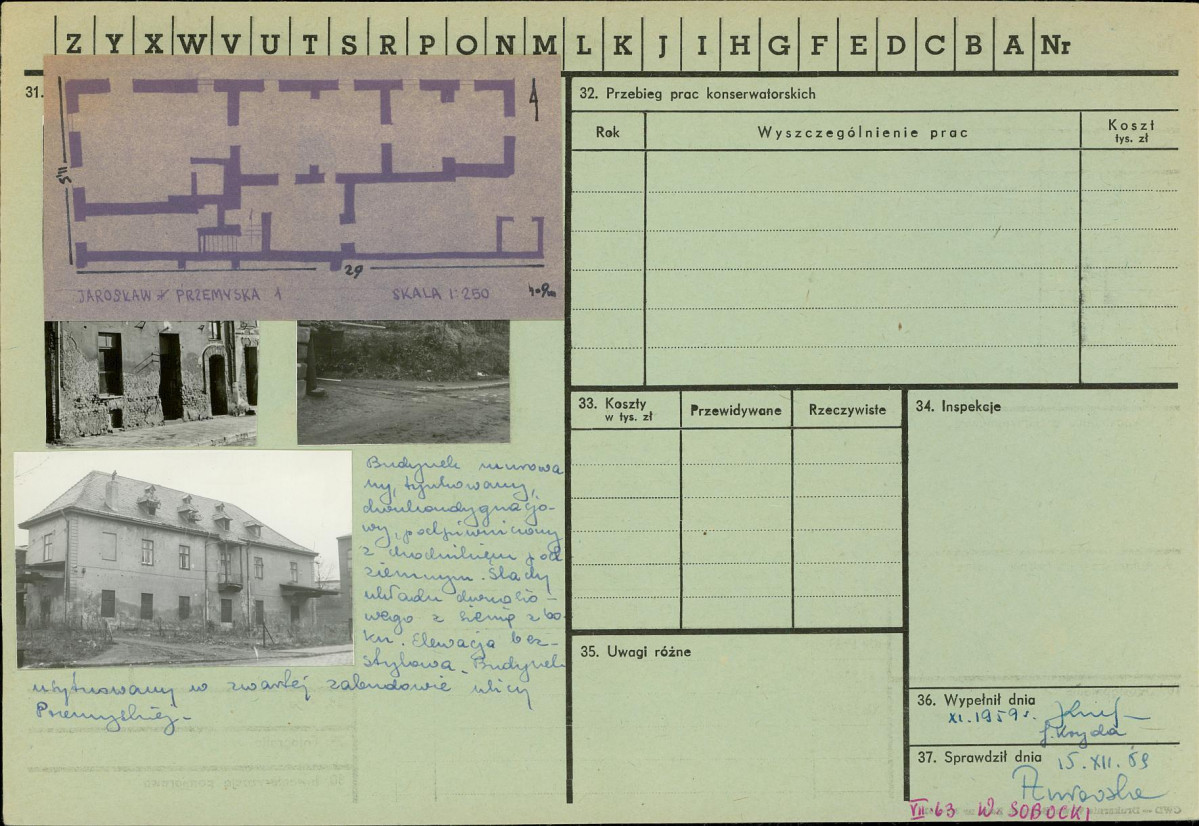 Z Y X W V U T S R P O N M L K J I H G F E D C B A Nr
31.
11,5
29
JAROSŁAW PRZEMYSKA 1
SKALA 1:250
Budynek murowa
ny, tynkowany,
dwukondygnacjo-
wy, podpiwniczony
z chodnikiem pod
ziemnym. Ślady
układu dwutrakto-
wego z sienią z bo-
ku. Elewacja bez-
stylowa. Budynek
usytuowany w zwartej zabudowie ulicy
Przemyskiej.
32. Przebieg prac konserwatorskich
Rok
Wyszczególnienie prac
Koszt
tys. zł
33. Koszty
w tys. zł
Przewidywane
Rzeczywiste
34. Inspekcje
35. Uwagi różne
36. Wypełnił dnia
XI. 1959 r.
37. Sprawdził dnia
15. XII. 59
VII. 63 W SOBOCKI